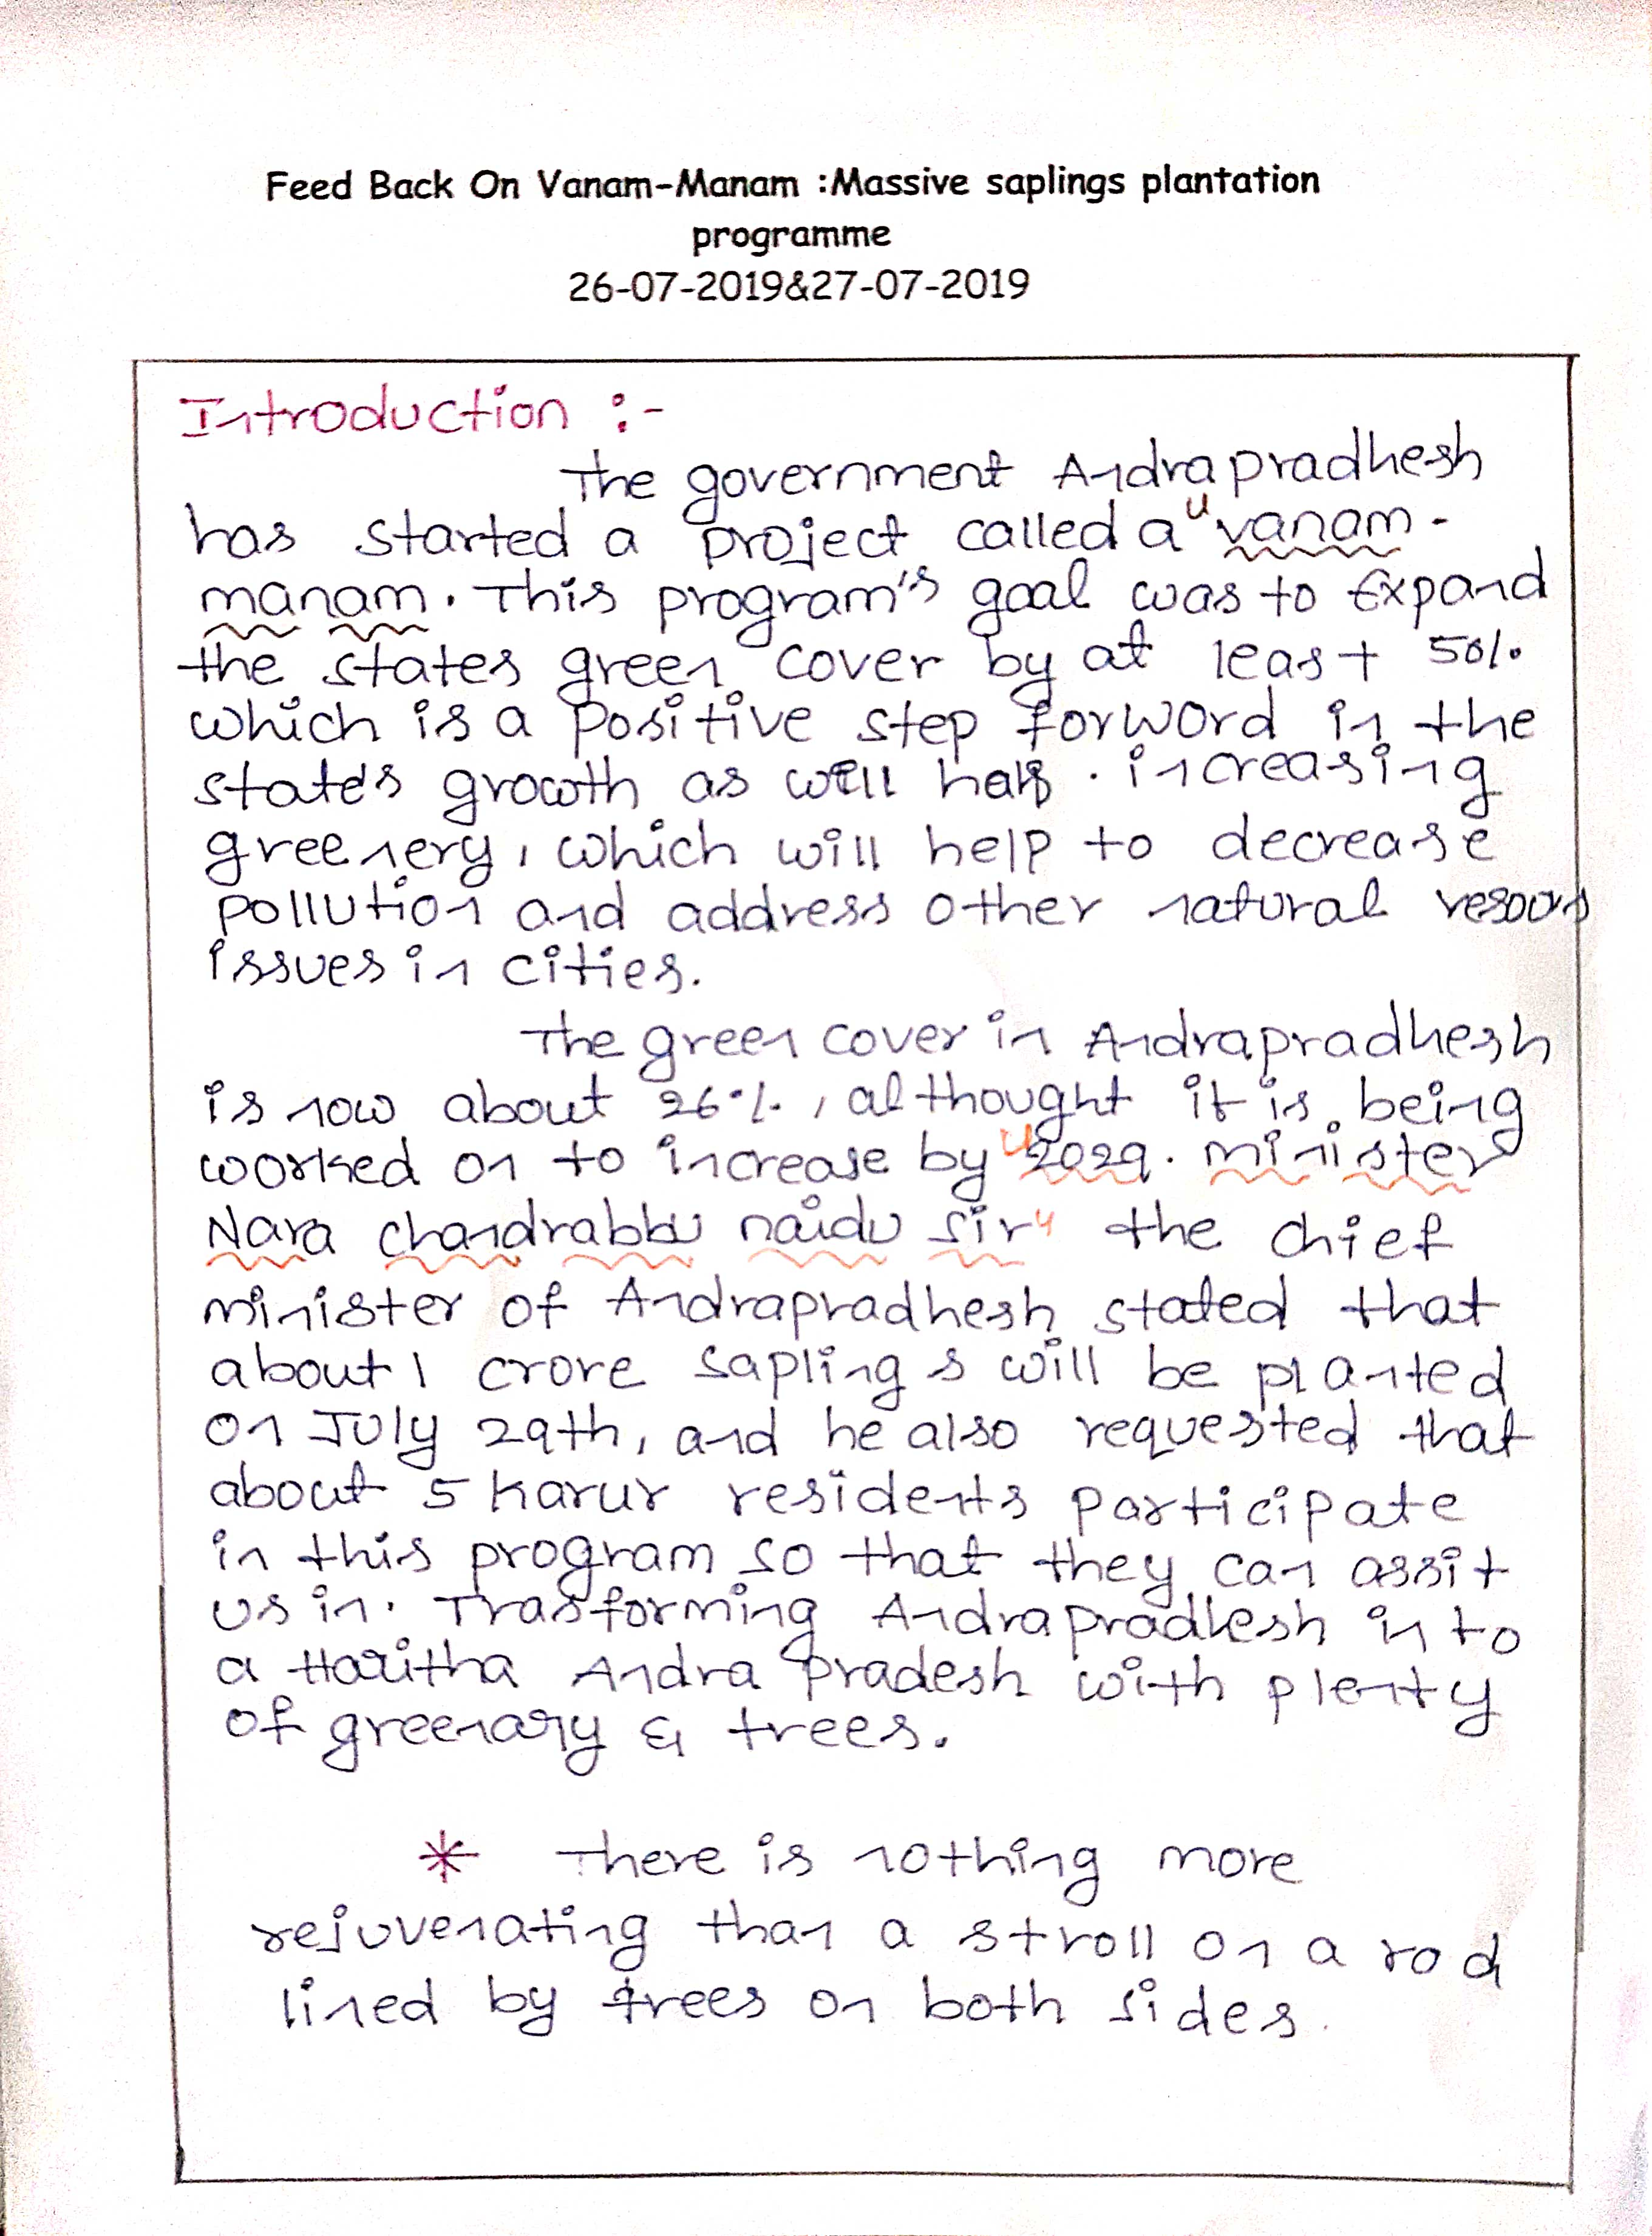 Feed Back On Vanam-Manam :Massive saplings plantation
programme
26-07-2019&27-07-2019
Introduction :-
The government Andrapradhesh
has started a project called a "vanam-
manam. This program's goal was to Expand
the states green cover by at least 50%
which is a positive step forword in the
state's growth as well . increasing
greenery, which will help to decrease
pollution and address other natural
issues in cities.
The green cover in Andrapradhesh
is now about 26%, althought it is being
worked on to increase by "2029. minister
Nara chandrabbu naidu sir" the chief
minister of Andrapradhesh stated that
about 1 crore saplings will be planted
on July 29th, and he also requested that
about 5 karur residents participate
in this program so that they can assit
us in. Trasforming Andrapradhesh in to
a Haritha Andra Pradesh with plenty
of greenary & trees.
* There is nothing more
rejuvenating than a stroll on a rod
lined by trees on both sides.